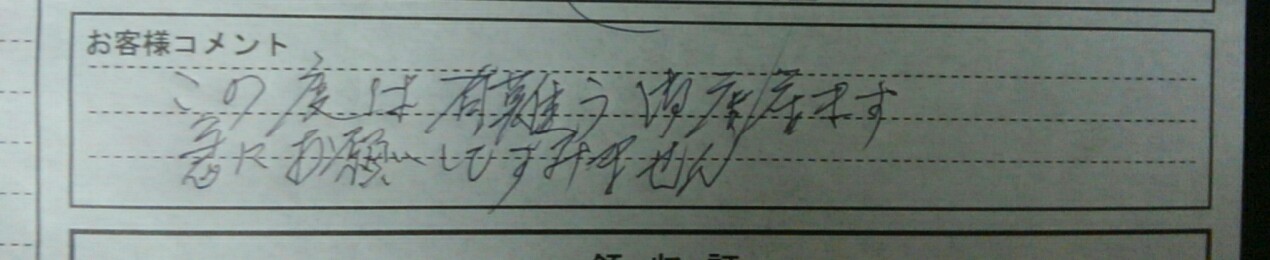 お客様コメント
この度は有難う御座居ます
急にお願いしてすみません
領収証